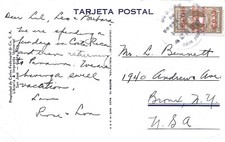 TARJETA POSTAL
Dear Lil, Leo & Barbara
We are spending a
few days in Costa Rica
and then returning
to Panama. We're
having a swell
vacation.
Love
Rose + Lou
Mr. L. Bennett
1940 Andrews Ave
Bronx, N.Y.
U.S.A